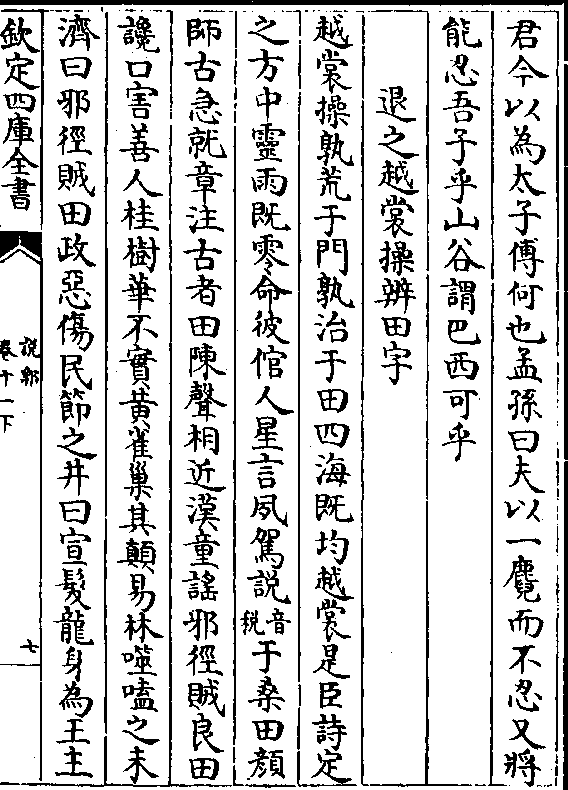 君今以為太子傅何也孟孫曰夫以一麑而不忍又將
能忍吾子乎山谷謂巴西可乎
退之越裳操辨田字
越裳操孰荒于門孰治于田四海既均越裳是臣詩定
之方中靈雨既零命彼倌人星言夙駕説音税于桑田顔
師古急就章注古者田陳聲相近漢童謡邪徑賊良田
讒口害善人桂樹華不實黄雀巢其顛易林噬嗑之未
濟曰邪徑賊田政惡傷民節之井曰宣髮龍身為王主
欽定四庫全書
説郛
卷十一下
七